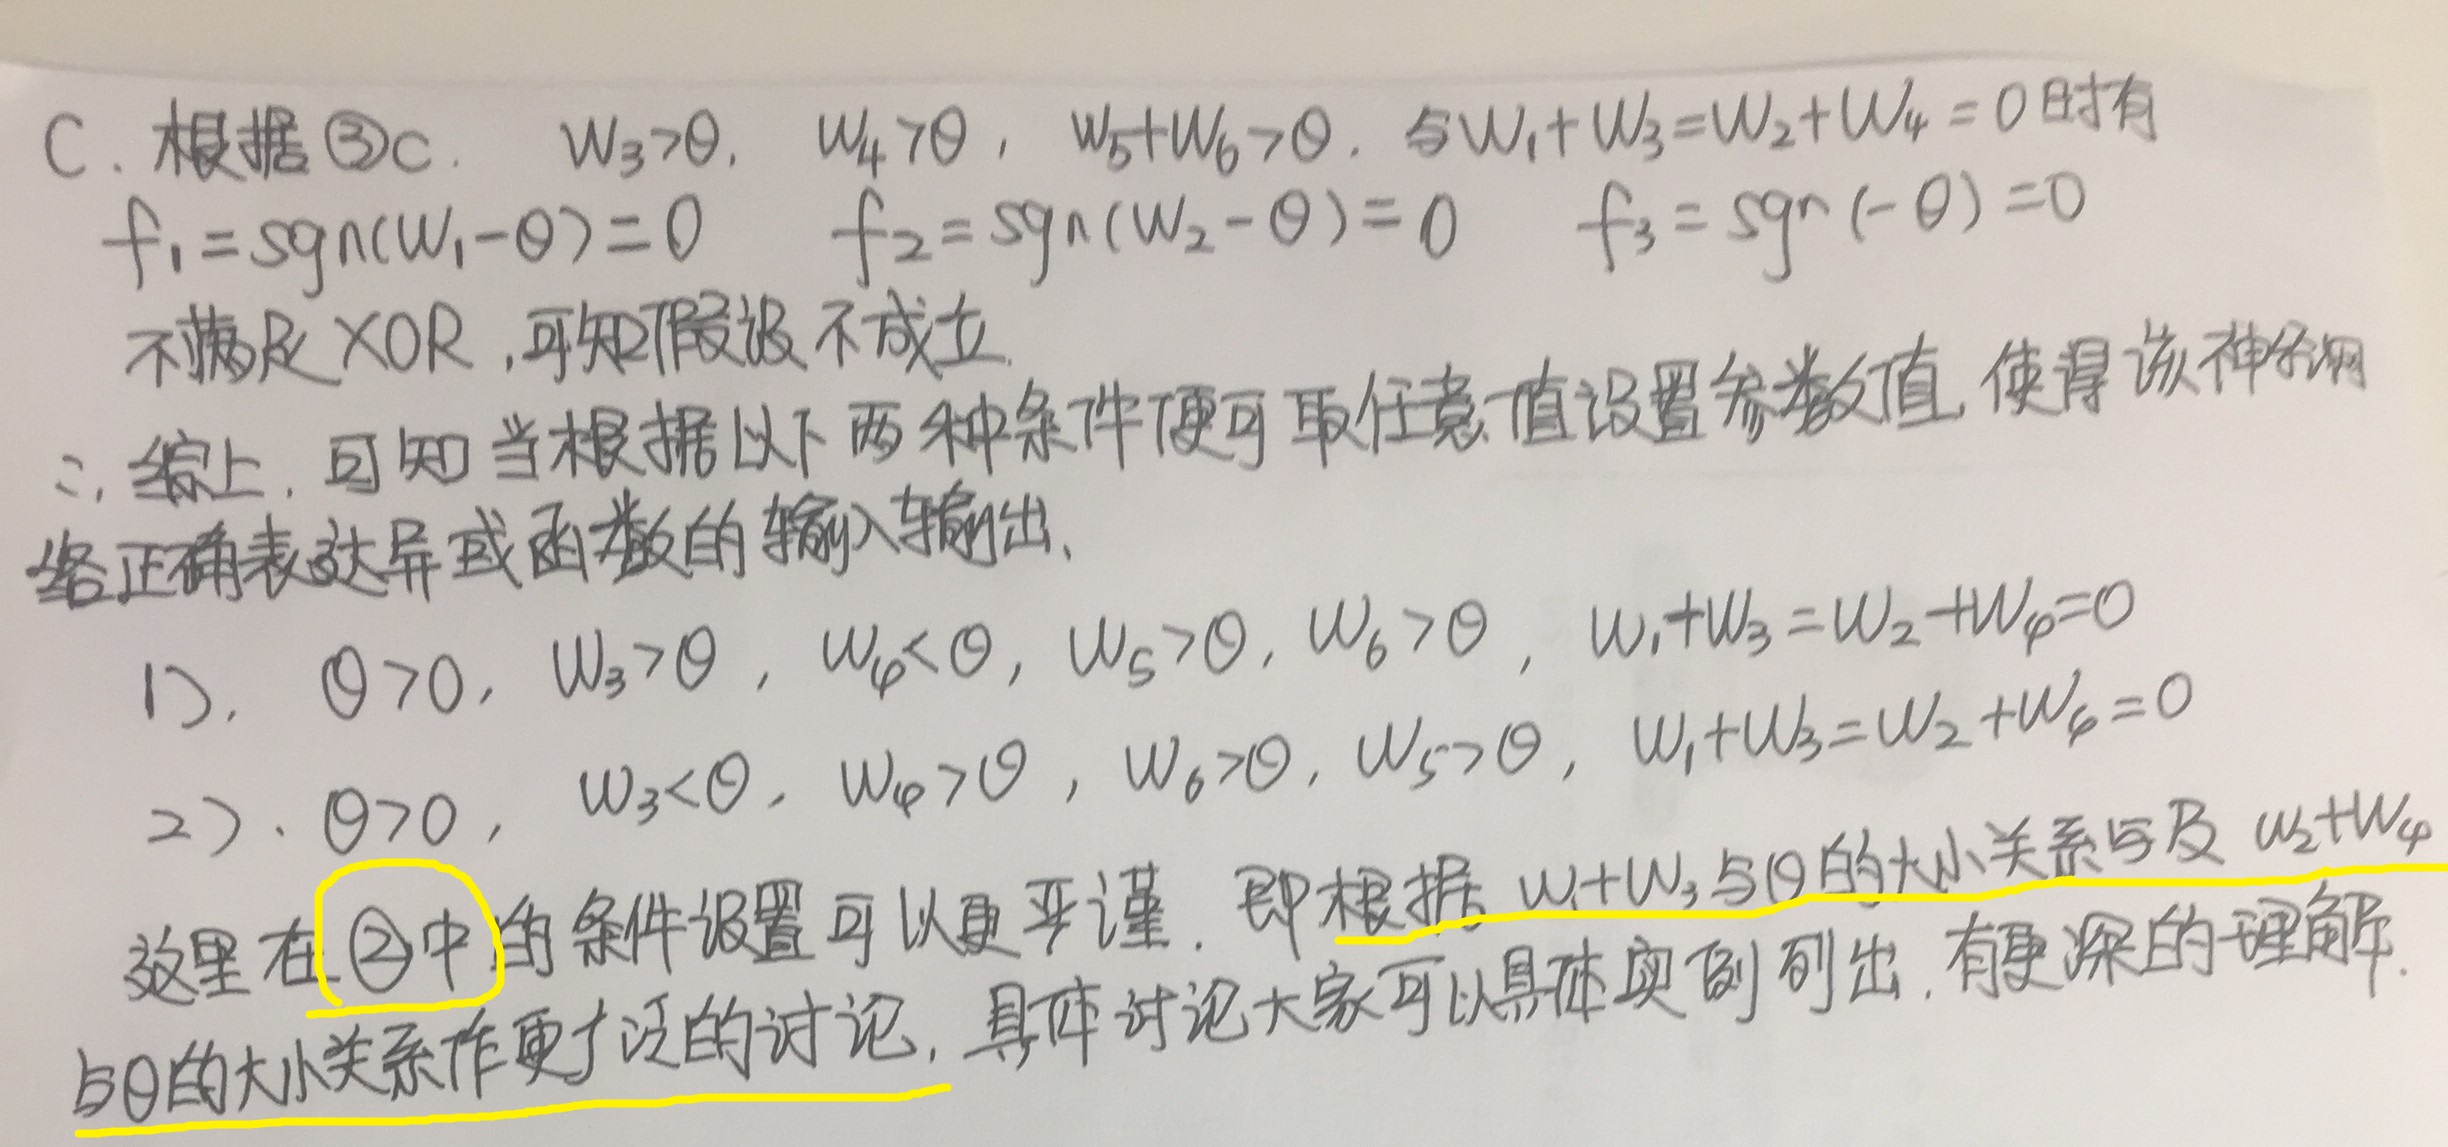 C. 根据③C. W₃>θ, W₄>θ, W₅+W₆>θ. 与W₁+W₃=W₂+W₄=0时有
f₁=sgn(W₁-θ)=0 f₂=sgn(W₂-θ)=0 f₃=sgn(-θ)=0
不满足XOR,可知假设不成立.
∴综上,可知当根据以下两种条件便可取任意值设置参数值,使得该神经网
络正确表达异或函数的输入输出.
1). θ>0, W₃>θ, W₄<θ, W₅>θ, W₆>θ, W₁+W₃=W₂+W₄=0
2). θ>0, W₃<θ, W₄>θ, W₆>θ, W₅>θ, W₁+W₃=W₂+W₄=0
这里在②中的条件设置可以更严谨.即根据W₁+W₃与θ的大小关系与及W₂+W₄
与θ的大小关系作更广泛的讨论,具体讨论大家可以具体实例列出,有更深的理解.